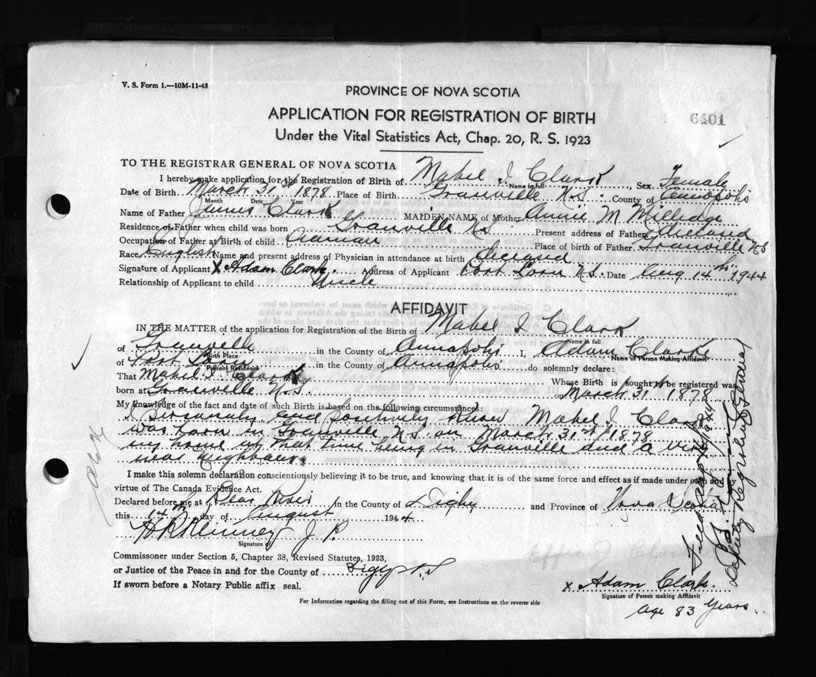 V. S. Form 1.—10M-11-43
PROVINCE OF NOVA SCOTIA
APPLICATION FOR REGISTRATION OF BIRTH
6401
Under the Vital Statistics Act, Chap. 20, R. S. 1923
TO THE REGISTRAR GENERAL OF NOVA SCOTIA
I hereby make application for the Registration of Birth of Mabel I Clark Sex Female
Name in full
Date of Birth March 31st 1878 Place of Birth Granville N.S. County of Annapolis
Month Date Year
Name of Father Clark MAIDEN NAME of Mother Annie M Milledge
Residence of Father when child was born Granville N.S. Present address of Father
Occupation of Father at Birth of child Place of birth of Father Granville N.S
Race English Name and present address of Physician in attendance at birth Deceased
Signature of Applicant x Adam Clark Address of Applicant N.S. Date Aug 14th 1944
Relationship of Applicant to child Uncle
AFFIDAVIT
IN THE MATTER of the application for Registration of the Birth of Mabel I Clark
Name in full
of Granville in the County of Annapolis I, Adam Clark
Birth Place Name of Person Making Affidavit
of in the County of Annapolis do solemnly declare:
Present Residence
That Mabel I. Clark Whose Birth is sought to be registered was
born at Granville N.S. March 31st 1878
My knowledge of the fact and date of such Birth is based on the following circumstances:
I and positively know Mabel I. Clark
was born in Granville N.S on March 31st 1878
my home at that time being in Granville and a very
near neighbour.
I make this solemn declaration conscientiously believing it to be true, and knowing that it is of the same force and effect as if made under oath and
virtue of The Canada Evidence Act.
Declared before me at Bear River in the County of Digby and Province of Nova Scotia
this 14th day of August 1944
J. P.
Signature of
Commissioner under Section 5, Chapter 38, Revised Statutes, 1923,
or Justice of the Peace in and for the County of Digby N.S
If sworn before a Notary Public affix seal.
x Adam Clark.
Signature of Person making Affidavit
For Information regarding the filling out of this Form, see Instructions on the reverse side
Age 83 Years.